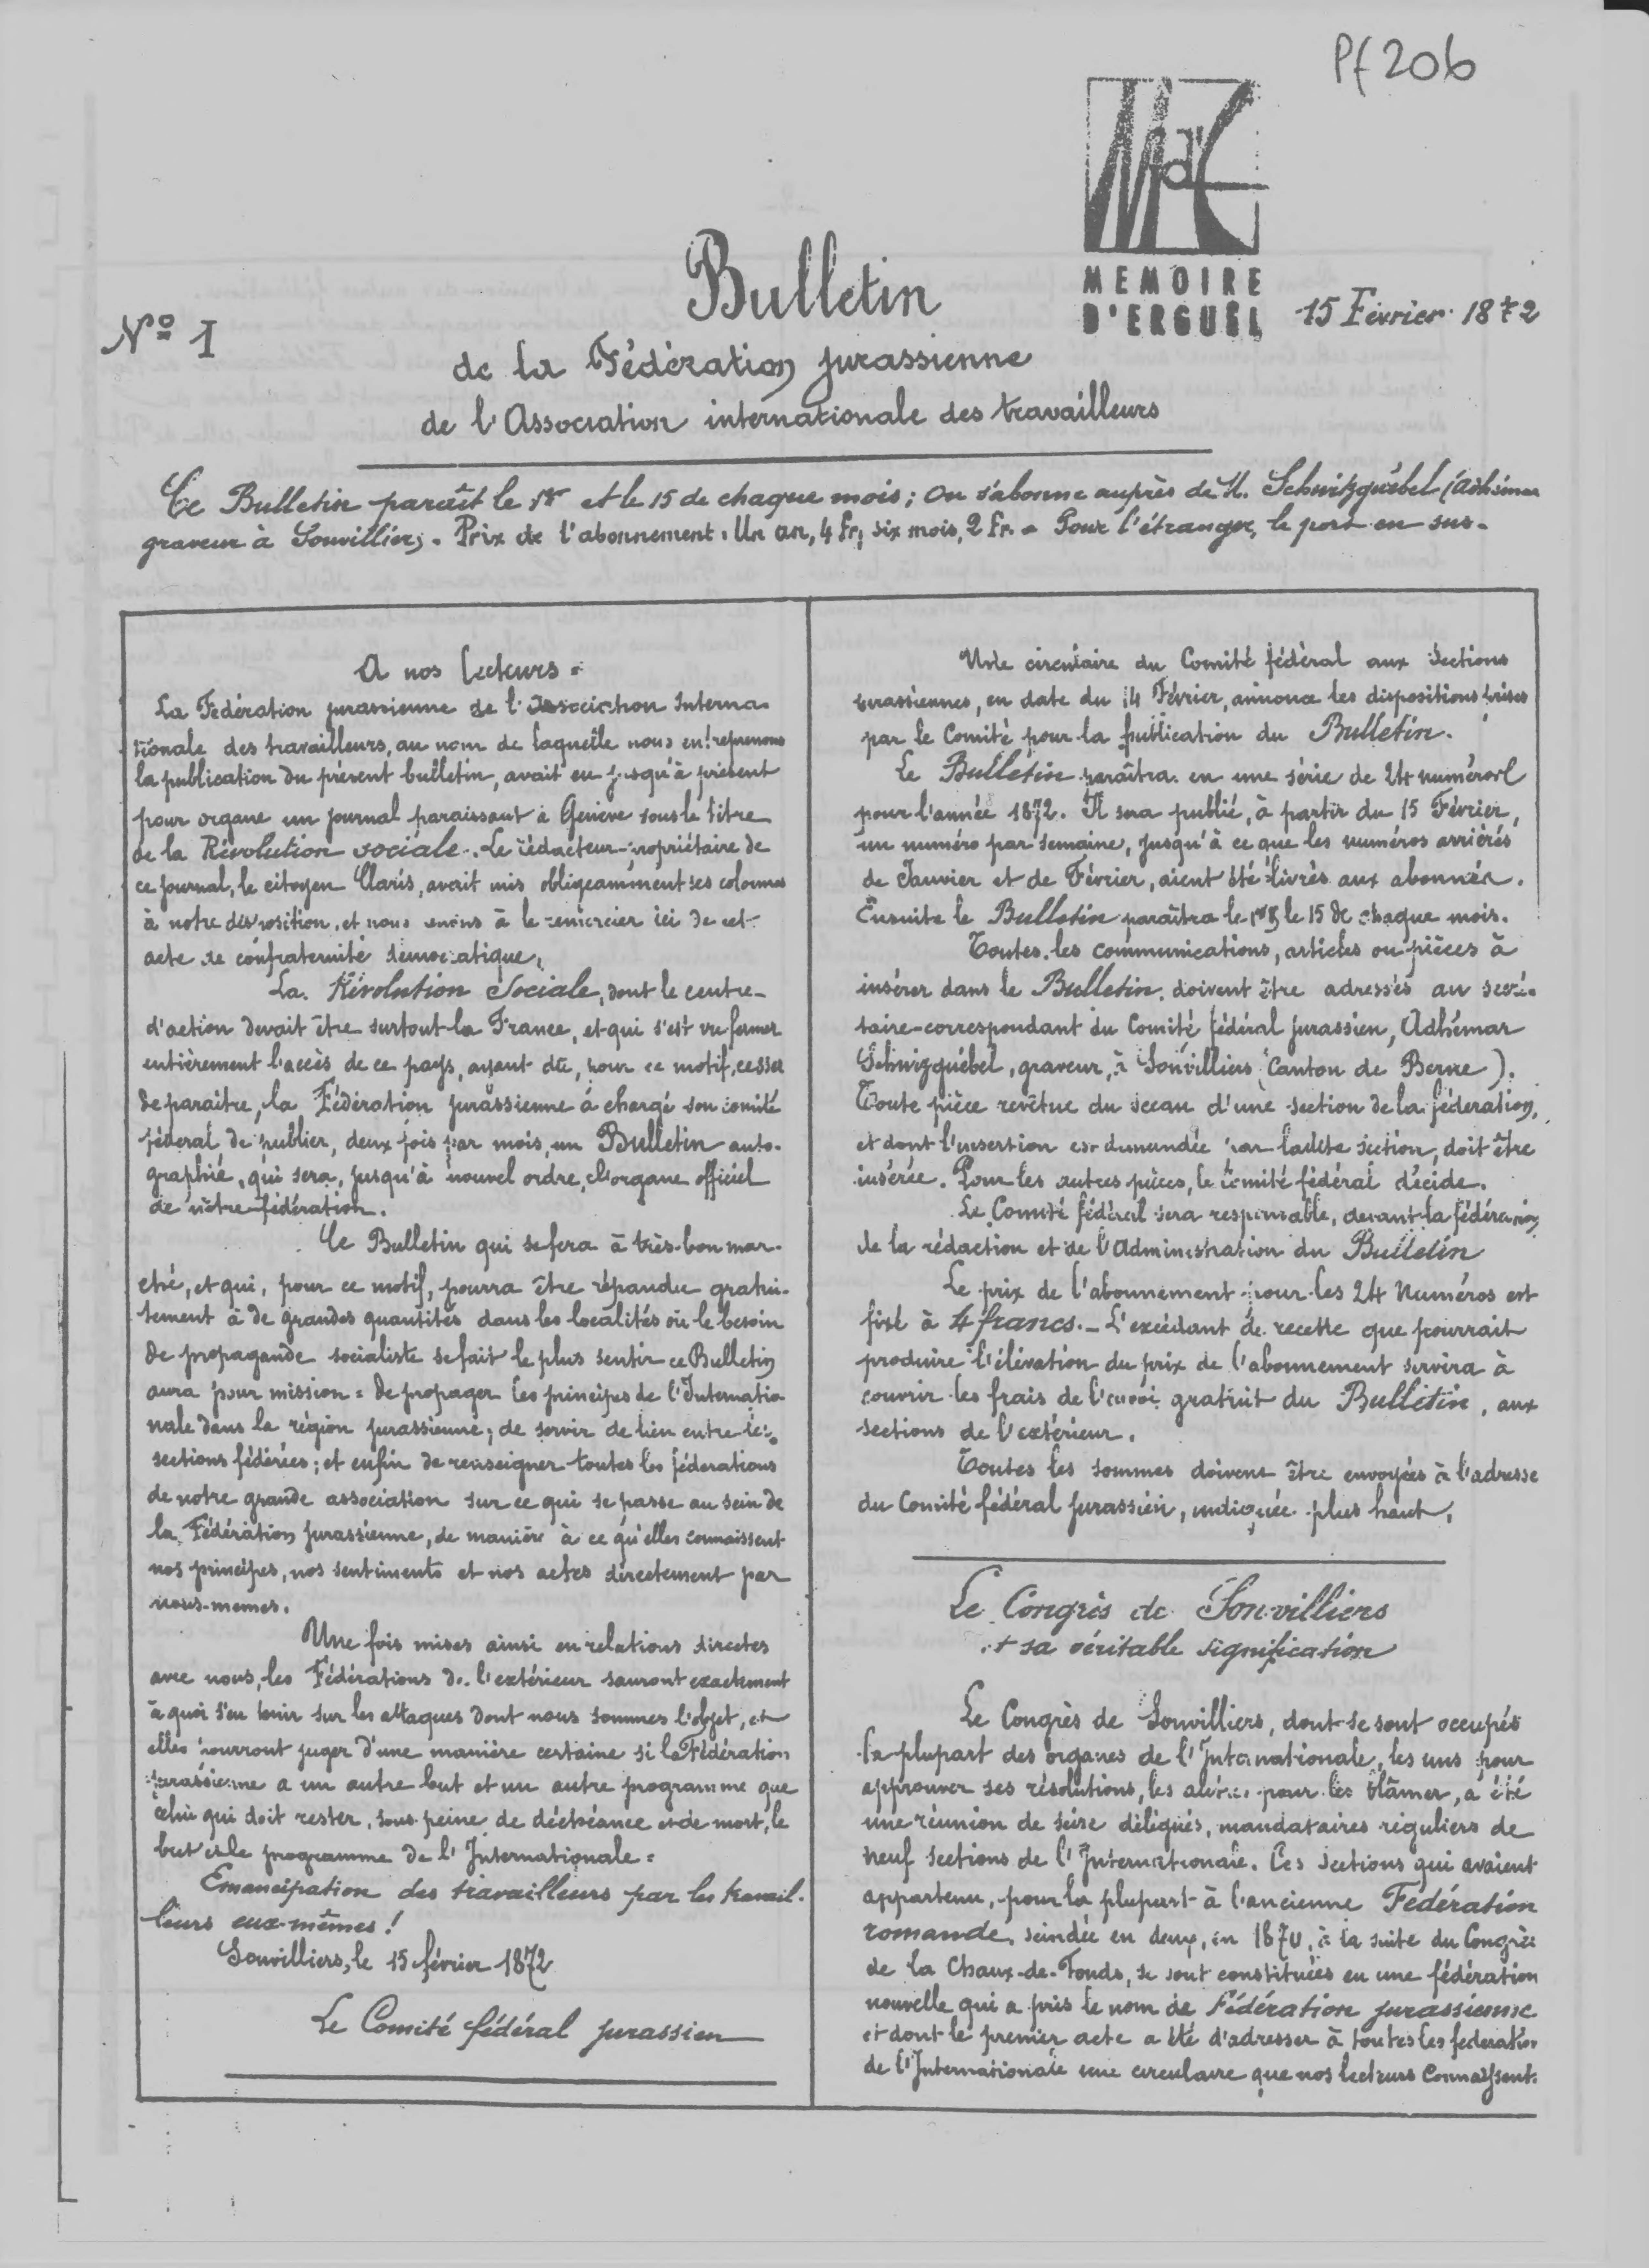 Pf 206
MEMOIRE
D'ERGUEL
Nº 1
Bulletin
15 Février 1872
de la Fédération jurassienne
de l'Association internationale des travailleurs
Ce Bulletin paraît le 1er et le 15 de chaque mois; On s'abonne auprès de M. Schwitzguébel (Adhémar
graveur à Sonvilliers. Prix de l'abonnement: Un an, 4 Fr; six mois, 2 Fr. - Pour l'étranger, le port en sus.
A nos lecteurs =
La Fédération jurassienne de l'Association Interna-
tionale des travailleurs, au nom de laquelle nous entreprenons
la publication du présent bulletin, avait eu jusqu'à présent
pour organe un journal paraissant à Genève sous le titre
de la Révolution sociale. Le rédacteur-propriétaire de
ce journal, le citoyen Claris, avait mis obligeamment ses colonnes
à notre disposition, et nous tenons à le remercier ici de cet
acte de confraternité démocratique.
La Révolution Sociale, dont le centre
d'action devait être surtout la France, et qui s'est vu fermer
entièrement l'accès de ce pays, ayant dû, pour ce motif, cesser
de paraître, la Fédération jurassienne a chargé son comité
fédéral de publier, deux fois par mois, un Bulletin auto-
graphié, qui sera, jusqu'à nouvel ordre, l'organe officiel
de notre fédération.
Ce Bulletin qui se fera à très-bon mar-
ché, et qui, pour ce motif, pourra être répandu gratui-
tement à de grandes quantités dans les localités où le besoin
de propagande socialiste se fait le plus sentir ce Bulletin
aura pour mission = de propager les principes de l'Internatio-
nale dans la région jurassienne; de servir de lien entre les
sections fédérées; et enfin de renseigner toutes les fédérations
de notre grande association sur ce qui se passe au sein de
la Fédération jurassienne, de manière à ce qu'elles connaissent
nos principes, nos sentiments et nos actes directement par
nous-mêmes.
Une fois mises ainsi en relations directes
avec nous, les Fédérations de l'extérieur sauront exactement
à quoi s'en tenir sur les attaques dont nous sommes l'objet, et
elles pourront juger d'une manière certaine si la Fédération
jurassienne a un autre but et un autre programme que
celui qui doit rester, sous peine de déchéance et de mort, le
but et le programme de l'Internationale =
Emancipation des travailleurs par les travail-
leurs eux-mêmes!
Sonvilliers, le 15 février 1872
Le Comité fédéral jurassien
Une circulaire du Comité fédéral aux Sections
jurassiennes, en date du 14 Février, annonce les dispositions prises
par le Comité pour la publication du Bulletin.
Le Bulletin paraîtra en une série de 24 numéros
pour l'année 1872. Il sera publié, à partir du 15 Février,
un numéro par semaine, jusqu'à ce que les numéros arriérés
de Janvier et de Février, aient été livrés aux abonnés.
Ensuite le Bulletin paraîtra le 1er & le 15 de chaque mois.
Toutes les communications, articles ou pièces à
insérer dans le Bulletin, doivent être adressés au secré-
taire-correspondant du Comité fédéral jurassien, Adhémar
Schwizguébel, graveur, à Sonvilliers (Canton de Berne).
Toute pièce revêtue du sceau d'une section de la fédération,
et dont l'insertion est demandée par ladite section, doit être
insérée. Pour les autres pièces, le comité fédéral décide.
Le Comité fédéral sera responsable, devant la fédération,
de la rédaction et de l'Administration du Bulletin
Le prix de l'abonnement pour les 24 Numéros est
fixé à 4 francs. - L'excédant de recette que pourrait
produire l'élévation du prix de l'abonnement servira à
couvrir les frais de l'envoi gratuit du Bulletin, aux
sections de l'extérieur.
Toutes les sommes doivent être envoyées à l'adresse
du Comité fédéral jurassien, indiquée plus haut.
Le Congrès de Sonvilliers
et sa véritable signification
Le Congrès de Sonvilliers, dont se sont occupés
la plupart des organes de l'Internationale, les uns pour
approuver ses résolutions, les autres pour les blâmer, a été
une réunion de seize délégués, mandataires réguliers de
neuf sections de l'Internationale. Ces sections qui avaient
appartenu, pour la plupart à l'ancienne Fédération
romande, scindée en deux, en 1870, à la suite du Congrès
de la Chaux-de-Fonds, se sont constituées en une fédération
nouvelle qui a pris le nom de Fédération jurassienne
et dont le premier acte a été d'adresser à toutes les federation
de l'Internationale une circulaire que nos lecteurs connaissent.